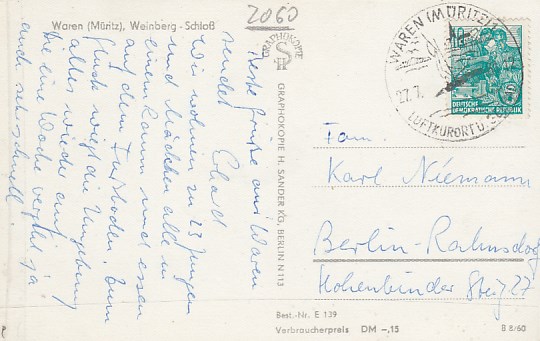 Waren (Müritz), Weinberg - Schloß
2060
Beste Grüße aus Waren
sendet Erhard
Wir wohnen zu 23 Jungen
und Mädchen alle in
einem Raum und essen
auf dem Fußboden. Zum
Glück wiegt die Umgebung
alles wieder auf.
Die eine Woche vergeht ja
auch sehr schnell.
GRAPHOKOPIE
H S
GRAPHOKOPIE H. SANDER KG. BERLIN N 113
WAREN (MÜRITZ)
27.7.
LUFTKURORT U.
DEUTSCHE
DEMOKRATISCHE REPUBLIK
Fam
Karl Niemann
Berlin-Rahnsdorf
Hohenbinder Steig 27
Best.-Nr. E 139
Verbraucherpreis DM -,15
B 8/60